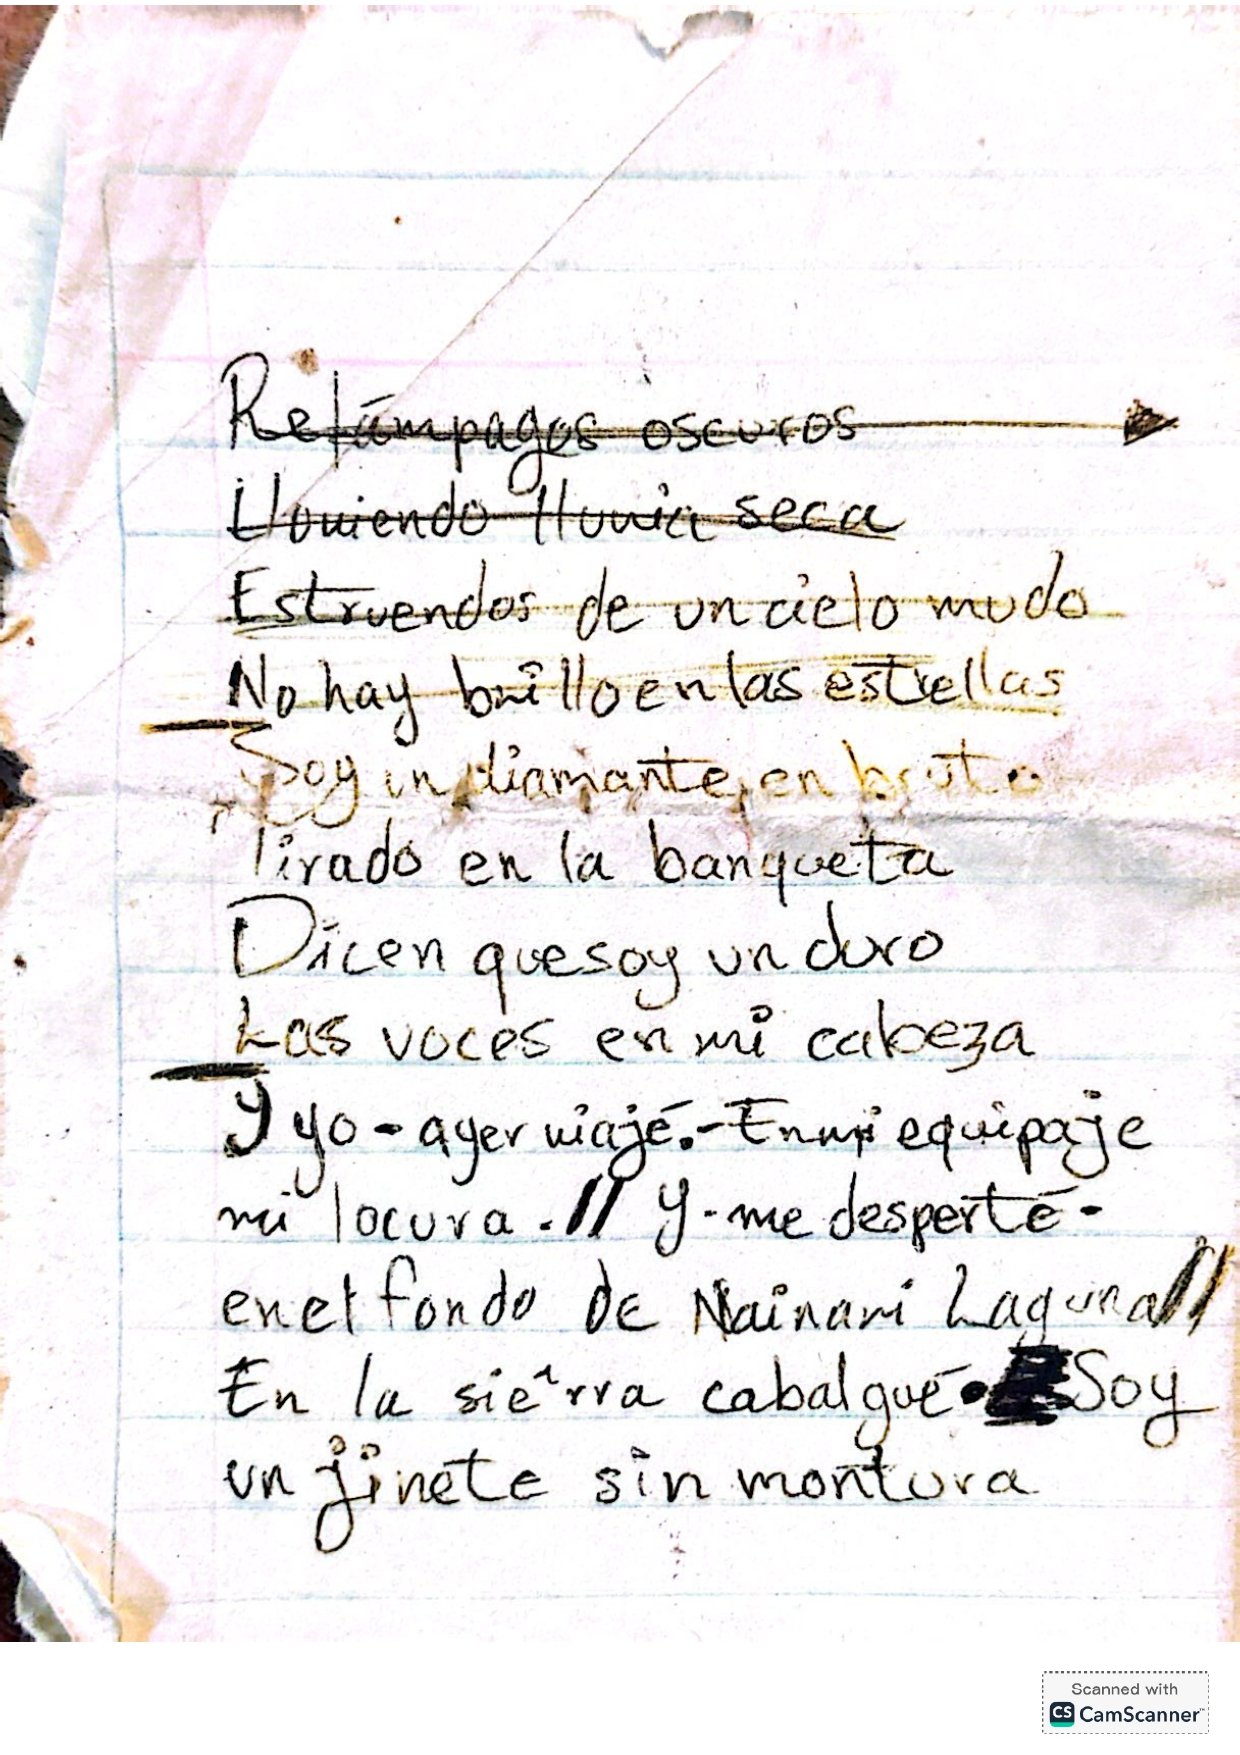 Relámpagos oscuros
Lloviendo lluvia seca
Estruendos de un cielo mudo
No hay brillo en las estrellas
Soy un diamante, en bruto
Tirado en la banqueta
Dicen que soy un duro
Las voces en mi cabeza
Y yo - ayer viajé. - En mi equipaje
mi locura . // Y - me desperté -
en el fondo de Nainari Laguna //
En la sierra cabalgué. Soy
un jinete sin montura
Scanned with
CS CamScanner